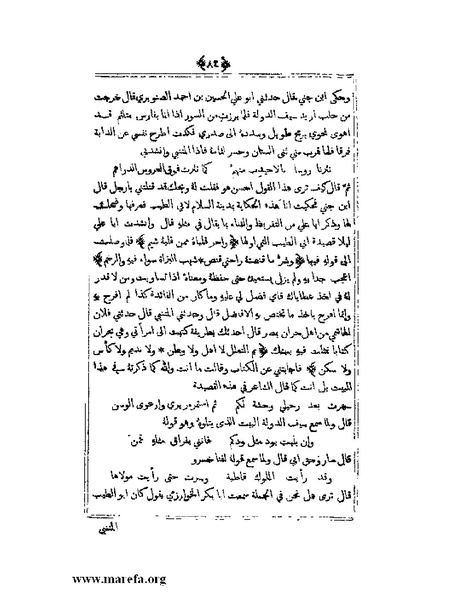 ﴿٨٤﴾
وحكى ابن جني قال حدثني ابو علي الحسين بن احمد الصنوبري قال خرجت
من حلب اريد سيف الدولة فلما برزت من السور اذا انا بفارس متلثم قد
اهوى نحوي برمح طويل وسدده الى صدري فكدت اطرح نفسي عن الدابة
فرقا فلما قرب مني ثنى السنان وحسر لثامه فاذا المتنبي وانشدني
نثرنا رووسا بالاحيدب منهم كما نثرت فوق العروس الدراهم
ثم قال كيف ترى هذا القول احسن هو فقلت له ويحك قد قتلتني يا رجل قال
ابن جني فحكيت انا هذه الحكاية بمدينة السلام لابي الطيب فعرفها وضحك
لها وذكر ابا علي من التقريظ والثناء بما يقال في مثله قال وانشدت ابا علي
ليلا قصيدة ابي الطيب التي اولها ﴿واحر قلباه ممن قلبه شبم﴾ فلما وصلت
الى قوله فيها ﴿وشر ما قنصته راحتي قنص * شهب البزاة سواء فيه والرخم﴾
اعجب جدا به ولم يزل يستعيده حتى حفظه ومعناه اذا تساويت ومن لا قدر
له في اخذ عطاياك فاي فضل لي عليه وما كان من الفائدة كذا لم افرح به
وانما افرح باخذ ما تختص به الافاضل قال وحدثني المتنبي قال حدثني فلان
الهاشمي من اهل حران بمصر قال احدثك بطريفة كتبت الى امرأتي وهي بحران
كتابا تمثلت فيه ببيتك ﴿بم التعلل لا اهل ولا وطن * ولا نديم ولا كأس
ولا سكن﴾ فاجابتني عن الكتاب وقالت ما انت والله كما ذكرته في هذا
البيت بل انت كما قال الشاعر في هذه القصيدة
سهرت بعد رحيلي وحشة لكم ثم استمر مريري وارعوى الوسن
قال ولما سمع سيف الدولة البيت الذي يتلوه وهو قوله
وان بليت بود مثل ودكم فانني بفراق مثله قمن
قال سار وحق ابي قال ولما سمع قوله لفناخسرو
وقد رأيت الملوك قاطبة وسرت حتى رأيت مولاها
قال ترى هل نحن في الجملة سمعت ابا بكر الخوارزمي يقول كان ابو الطيب
المتنبي
www.marefa.org